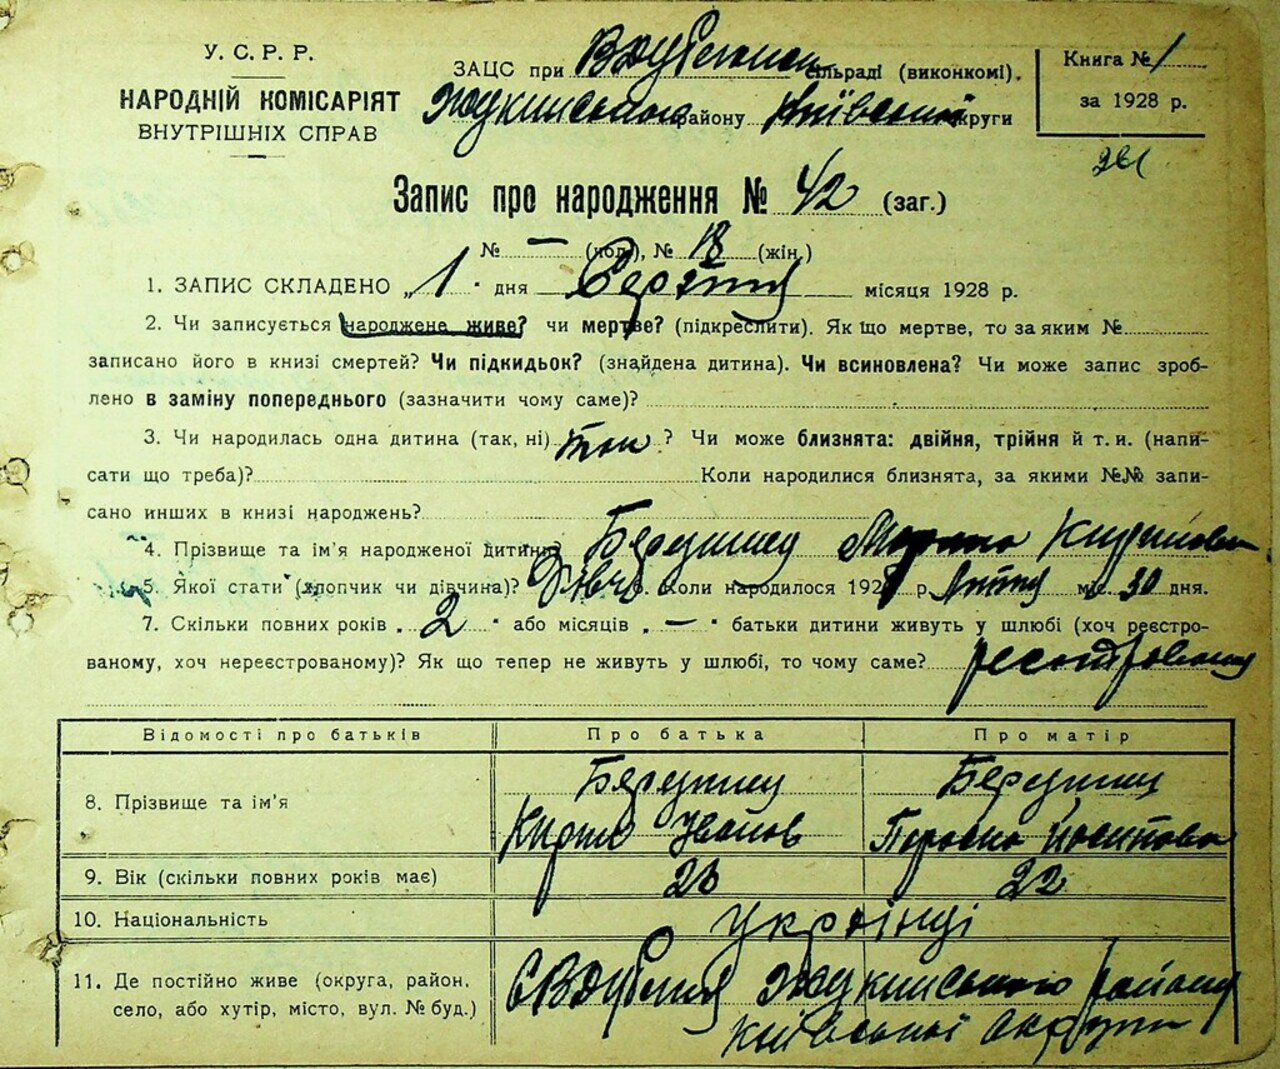 У. С. Р. Р.
НАРОДНІЙ КОМІСАРІЯТ
ВНУТРІШНІХ СПРАВ
ЗАЦС при сільраді (виконкомі).
району Київської округи
Книга № 1
за 1928 р.
261
Запис про народження № 42 (заг.)
№ — (чол.), № 18 (жін.)
1. ЗАПИС СКЛАДЕНО „ 1 " дня Серпня місяця 1928 р.
2. Чи записується народжене живе? чи мертве? (підкреслити). Як що мертве, то за яким №
записано його в книзі смертей? Чи підкидьок? (знайдена дитина). Чи всиновлена? Чи може запис зроб-
лено в заміну попереднього (зазначити чому саме)?
3. Чи народилась одна дитина (так, ні) так ? Чи може близнята: двійня, трійня й т. и. (напи-
сати що треба)? Коли народилися близнята, за якими №№ запи-
сано инших в книзі народжень?
4. Прізвище та ім'я народженої дитини?
5. Якої стати (хлопчик чи дівчина)? 6. Коли народилося 1928 р. міс. 30 дня.
7. Скільки повних років „ 2 " або місяців „ — " батьки дитини живуть у шлюбі (хоч реєстро-
ваному, хоч нереєстрованому)? Як що тепер не живуть у шлюбі, то чому саме?
Відомості про батьків Про батька Про матір
8. Прізвище та ім'я
Іванов
9. Вік (скільки повних років має) 22
10. Національність Українці
11. Де постійно живе (округа, район, району
село, або хутір, місто, вул. № буд.) Київської округи